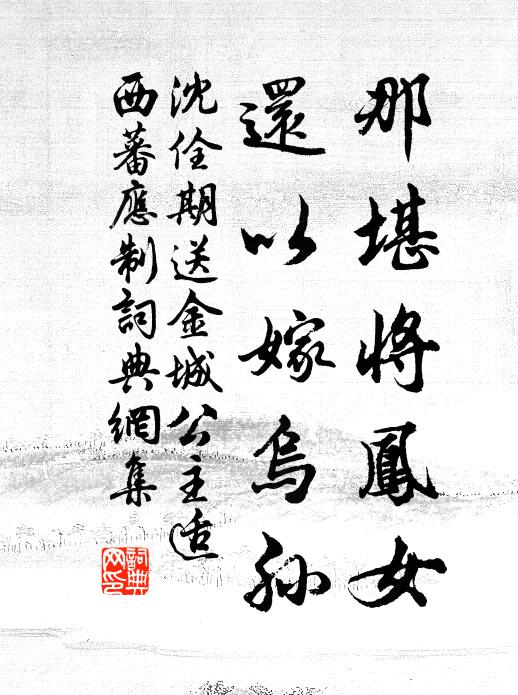 那堪將鳳女
還以嫁烏孫
沈佺期送金城公主适
西蕃應制詞典網集
詞典
网印